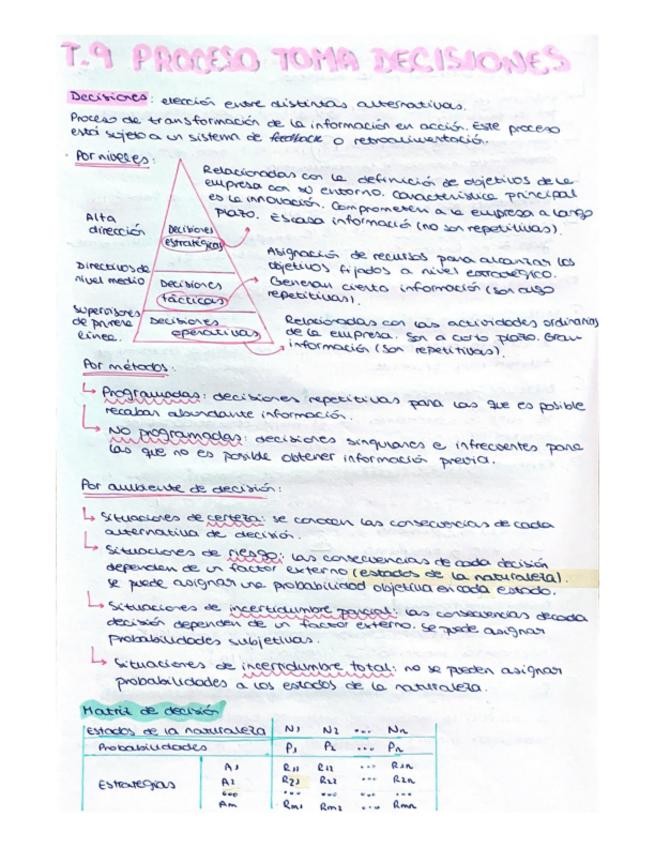 T.9 PROCESO TOMA DECISIONES
Decisiones: elección entre distintas alternativas.
Proceso de transformación de la información en acción. Este proceso
está sujeto a un sistema de feedback o retroalimentación.
· Por niveles:
Relacionadas con la definición de objetivos de la
empresa con su entorno. Característica principal
es la innovación. Comprometen a la empresa a largo
plazo. Escasa información (no son repetitivas).
Alta
dirección
Decisiones
estratégicas
Asignación de recursos para alcanzar los
objetivos fijados a nivel estratégico.
Generan cierta información (son algo
repetitivas).
Directivos de
nivel medio
Decisiones
tácticas
Supervisores
de primera
línea.
Decisiones
operativas
Relacionadas con las actividades ordinarias
de la empresa. Son a corto plazo. Gran
información (son repetitivas).
Por métodos:
Programadas: decisiones repetitivas para las que es posible
recabar abundante información.
No programadas: decisiones singulares e infrecuentes para
las que no es posible obtener información previa.
Por ambiente de decisión:
Situaciones de certeza: se conocen las consecuencias de cada
alternativa de decisión.
Situaciones de riesgo: las consecuencias de cada decisión
dependen de un factor externo (estados de la naturaleza).
Se puede asignar una probabilidad objetiva en cada estado.
Situaciones de incertidumbre parcial: las consecuencias de cada
decisión dependen de un factor externo. Se puede asignar
probabilidades subjetivas.
Situaciones de incertidumbre total: no se pueden asignar
probabilidades a los estados de la naturaleza.
Matriz de decisión
Estados de la naturaleza N1 N2 ... Nn
Probabilidades P1 P2 ... Pn
A1 R11 R12 ... R1n
Estrategias A2 R21 R22 ... R2n
... ... ... ... ...
Am Rm1 Rm2 ... Rmn